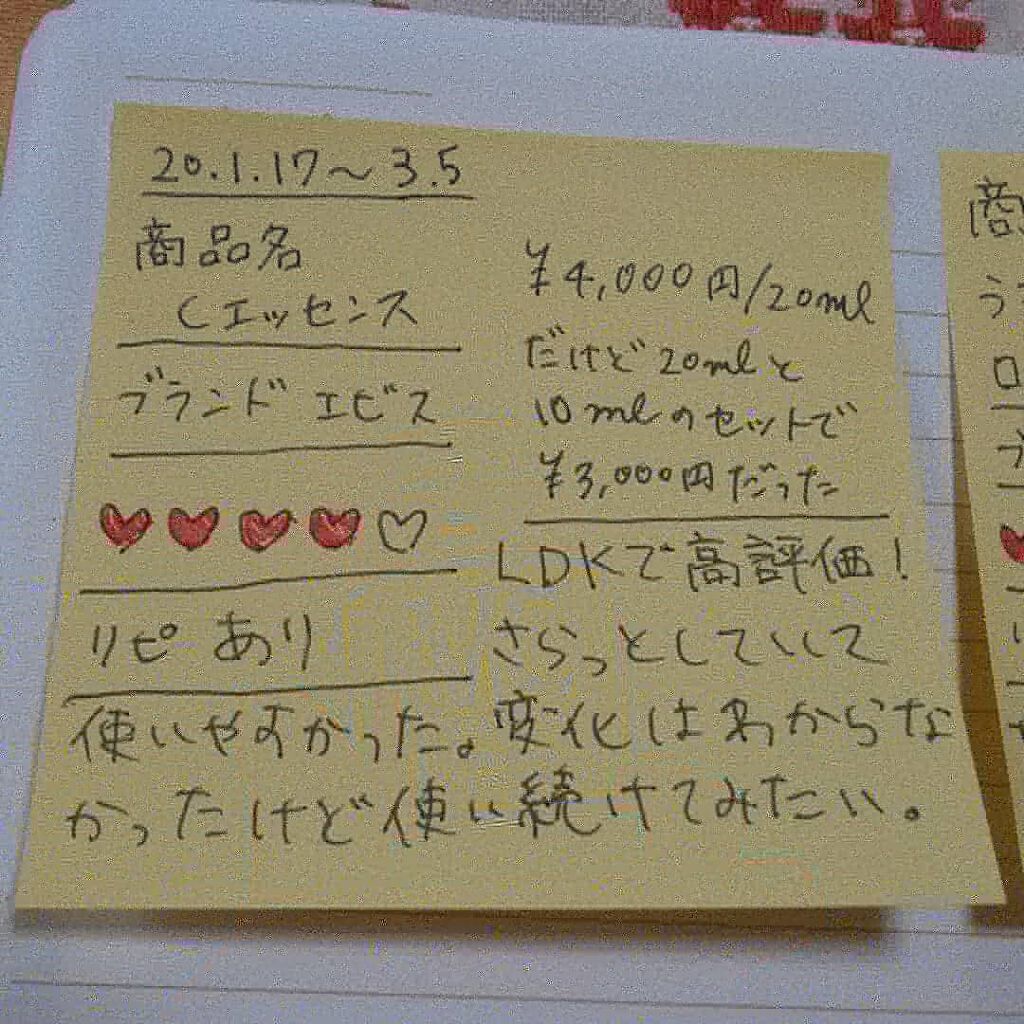 20.1.17〜3.5
商品名
Cエッセンス
ブランド エビス
リピ あり
¥4,000円/20ml
だけど20mlと
10mlのセットで
¥3,000円だった
LDKで高評価!
さらっとしていして
使いやすかった。変化はわからな
かったけど使い続けてみたい。
商
う
ロ